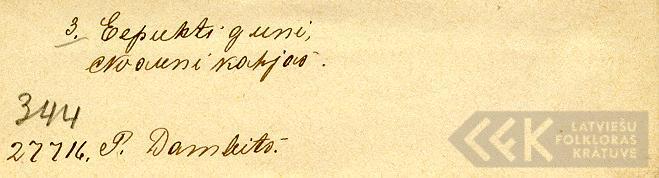 3. Eepukti guni,
kapjas.
344
27716, P. Dambits.
LATVIEŠU
FOLKLORAS
KRĀTUVE